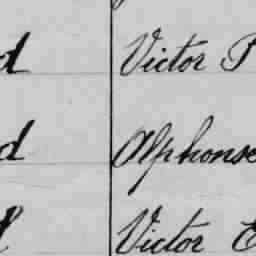 d Victor P
d Alphonse
l Victor E